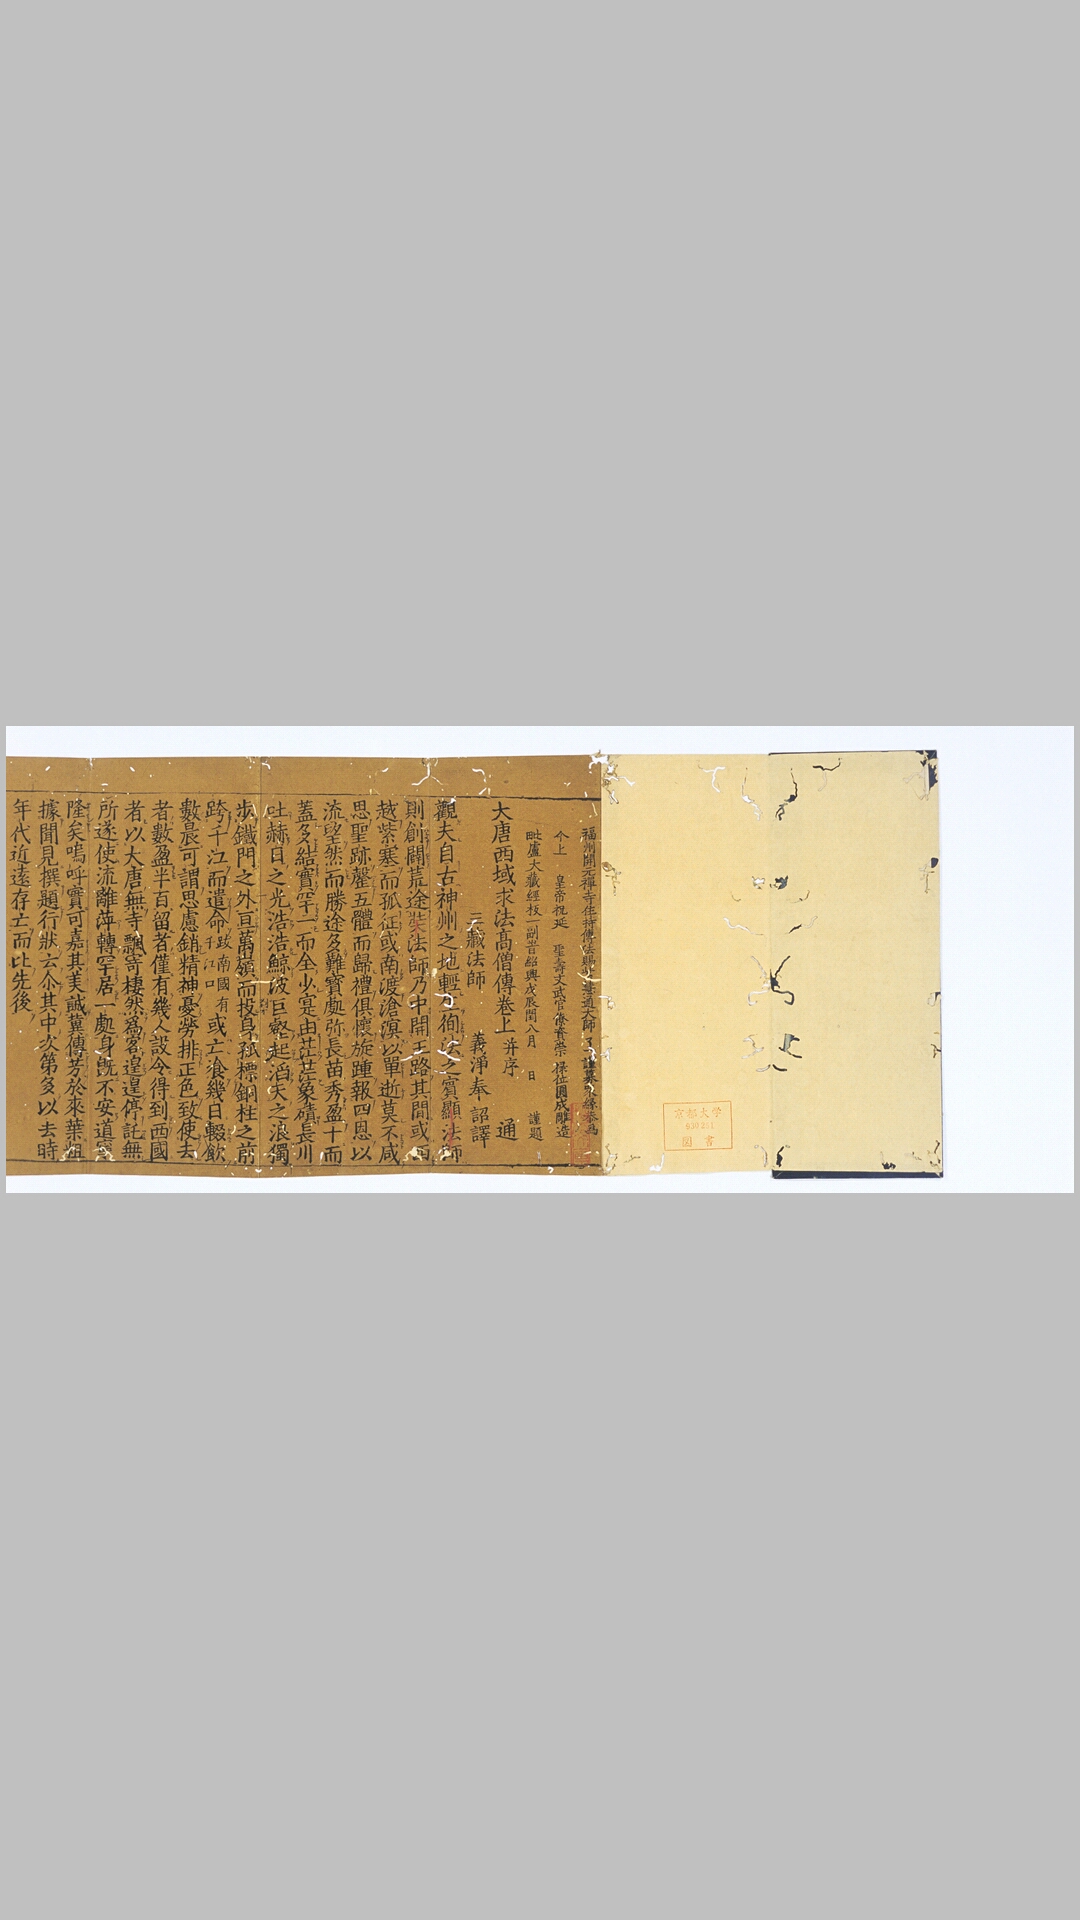 京都大学
830251
図書
福州開元禪寺住持傳法賜 慧通大師 了 謹募衆縁恭爲
今上 皇帝祝延 聖壽文武官僚資崇 禄位圓成雕造
毗盧大藏經板一副昔紹興戊辰閏八月 日 謹題
大唐西域求法髙僧傳卷上 并序 通
三藏法師 義淨奉 詔譯
觀夫自古神州之地輕生徇法之賓顯法師
則創闢荒途奘法師乃中開王路其間或西
越紫塞而孤征或南渡滄溟以單逝莫不咸
思聖跡罄五體而歸禮俱懷旋踵報四恩以
流望然而勝途多難寶處弥長苗秀盈十而
蓋多結實罕一而全少寔由茫茫象磧長川
吐赫日之光浩浩鯨波巨壑起滔天之浪獨
步鐵門之外亘萬嶺而投身孤標銅柱之前
跨千江而遣命 跋南國有千江口 或亡飡幾日輟飲
數晨可謂思慮銷精神憂勞排正色致使去
者數盈半百留者僅有幾人設令得到西國
者以大唐無寺飄寄棲然爲客遑遑停託無
所遂使流離萍轉罕居一處身既不安道寧
隆矣嗚呼實可嘉其美誠冀傳芳於來葉粗
據聞見撰題行狀云尒其中次第多以去時
年代近遠存亡而比先後